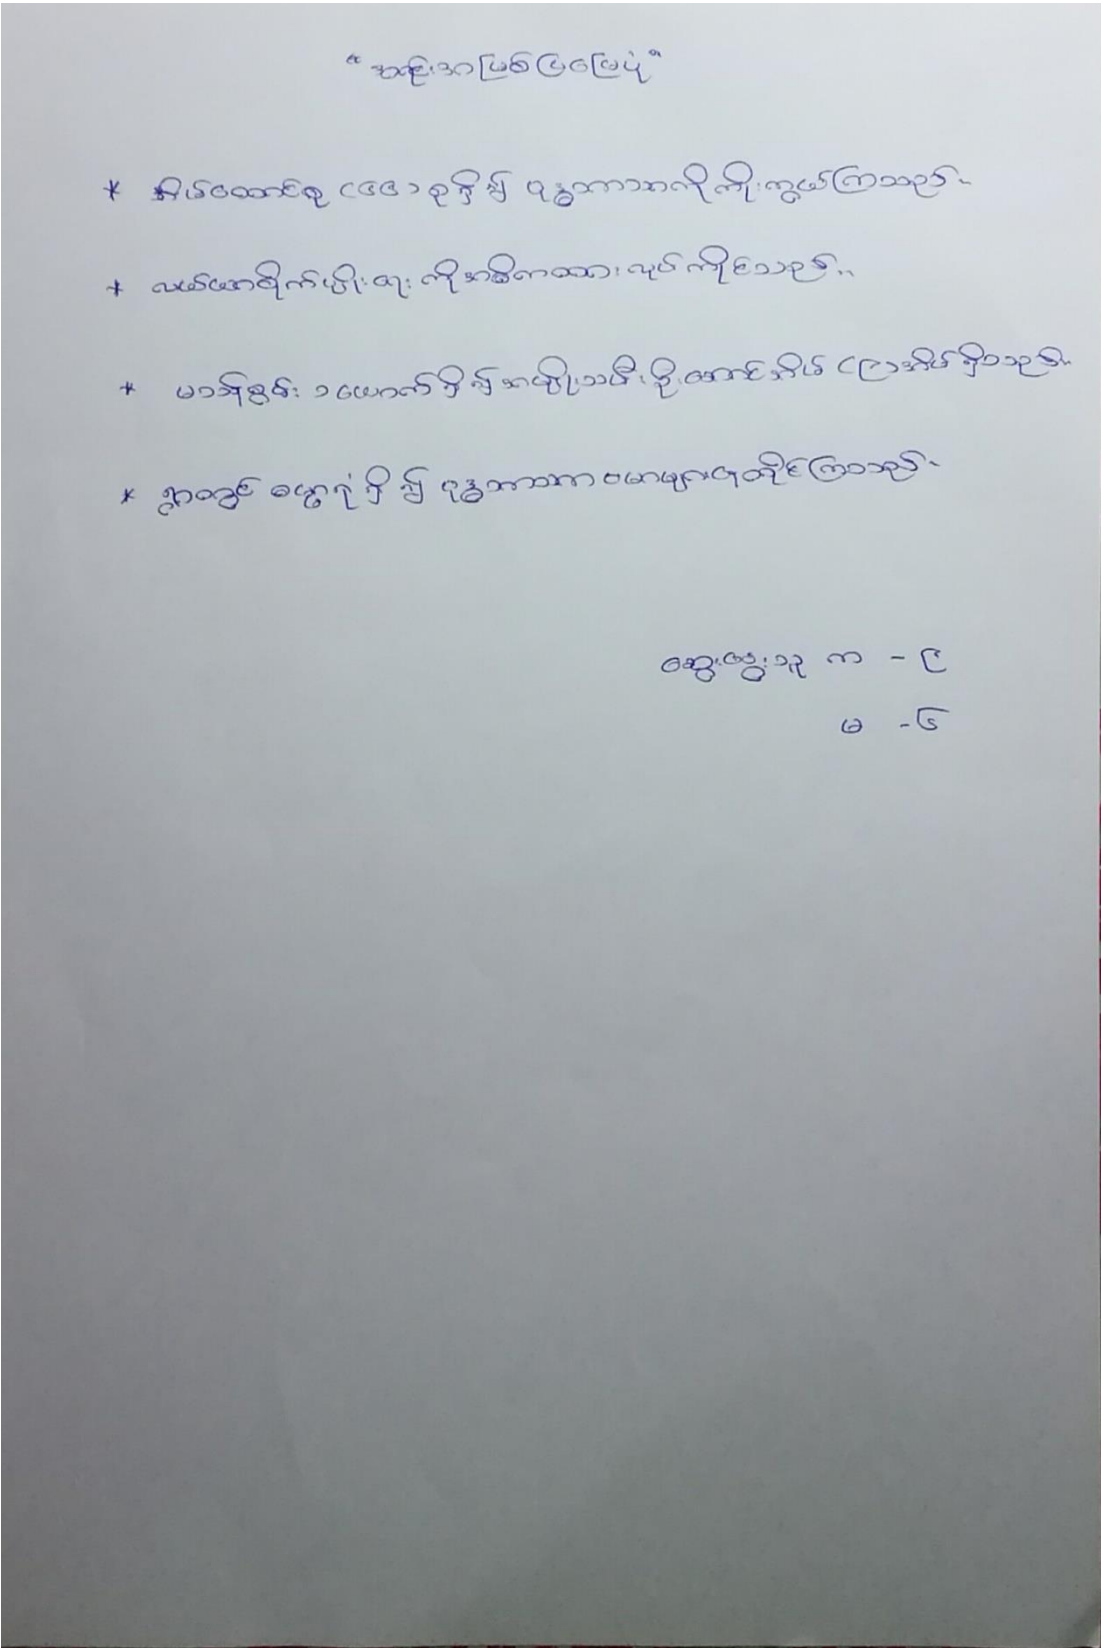 "အင်းအားပြစပြမြေပုံ"
* အိမ်ထောင်စု (၆၆) စုရှိ၍ ဗုဒ္ဓဘာသာကိုကိုးကွယ်ကြသည်။
* လယ်ယာစိုက်ပျိုးရေး ကိုအဓိကထား လုပ်ကိုင်သည်။
* မသန်စွမ်း ၁ ယောက်ရှိ၍ အမျိုးသမီးဦးဆောင်အိမ် (၉) အိမ်ရှိသည်။
* ရွာတွင် ဓမ္မာရုံ ရှိ၍ ဗုဒ္ဓဘာသာ ဗမာများနေထိုင်ကြသည်။
ဆွေးနွေးသူ ကျ - ၉
မ - ၆